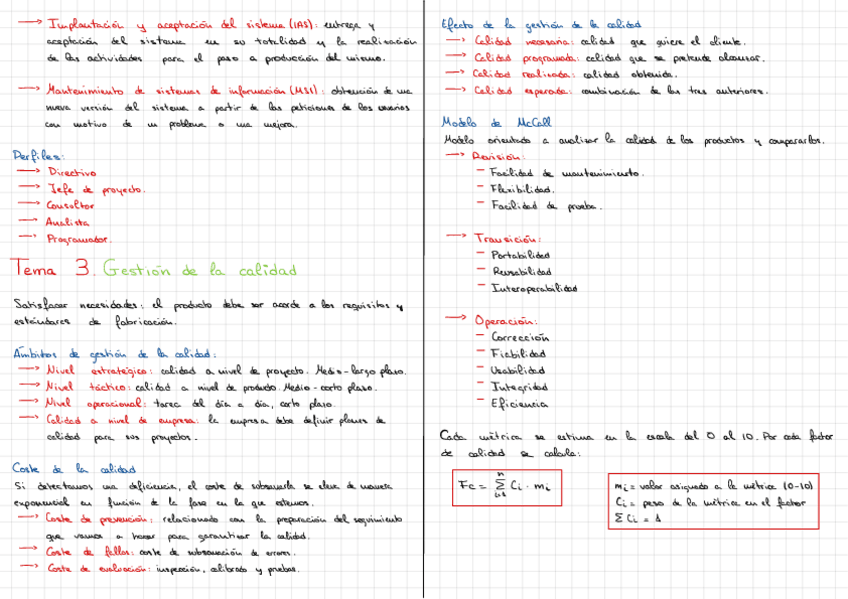 → Implantación y aceptación del sistema (IAS): entrega y
aceptación del sistema en su totalidad y la realización
de las actividades para el paso a producción del mismo.
→ Mantenimiento de sistemas de información (MSI): obtención de una
nueva versión del sistema a partir de las peticiones de los usuarios
con motivo de un problema o una mejora.
Perfiles:
→ Directivo
→ Jefe de proyecto.
→ Consultor
→ Analista
→ Programador.
Tema 3. Gestión de la calidad
Satisfacer necesidades: el producto debe ser acorde a los requisitos y
estándares de fabricación.
Ámbitos de gestión de la calidad:
→ Nivel estratégico: calidad a nivel de proyecto. Medio-largo plazo.
→ Nivel táctico: calidad a nivel de producto. Medio-corto plazo.
→ Nivel operacional: tarea del día a día, corto plazo.
→ Calidad a nivel de empresa: la empresa debe definir planes de
calidad para sus proyectos.
Coste de la calidad
Si detectamos una deficiencia, el coste de subsanarla se eleva de manera
exponencial en función de la fase en la que estemos.
→ Coste de prevención: relacionado con la preparación del seguimiento
que vamos a hacer para garantizar la calidad.
→ Coste de fallos: coste de subsanación de errores.
→ Coste de evaluación: inspección, calibrado y pruebas.
Efecto de la gestión de la calidad
→ Calidad necesaria: calidad que quiere el cliente.
→ Calidad programada: calidad que se pretende alcanzar.
→ Calidad realizada: calidad obtenida.
→ Calidad esperada: combinación de las tres anteriores.
Modelo de McCall
Modelo orientado a analizar la calidad de los productos y compararlos.
→ Revisión:
- Facilidad de mantenimiento.
- Flexibilidad.
- Facilidad de prueba.
→ Transición:
- Portabilidad
- Reusabilidad
- Interoperabilidad
→ Operación:
- Corrección
- Fiabilidad
- Usabilidad
- Integridad
- Eficiencia
Cada métrica se estima en la escala del 0 al 10. Por cada factor
de calidad se calcula:
Fc = Σ(i=1, n) Ci · mi
mi = valor asignado a la métrica (0-10)
Ci = peso de la métrica en el factor
Σ Ci = 1